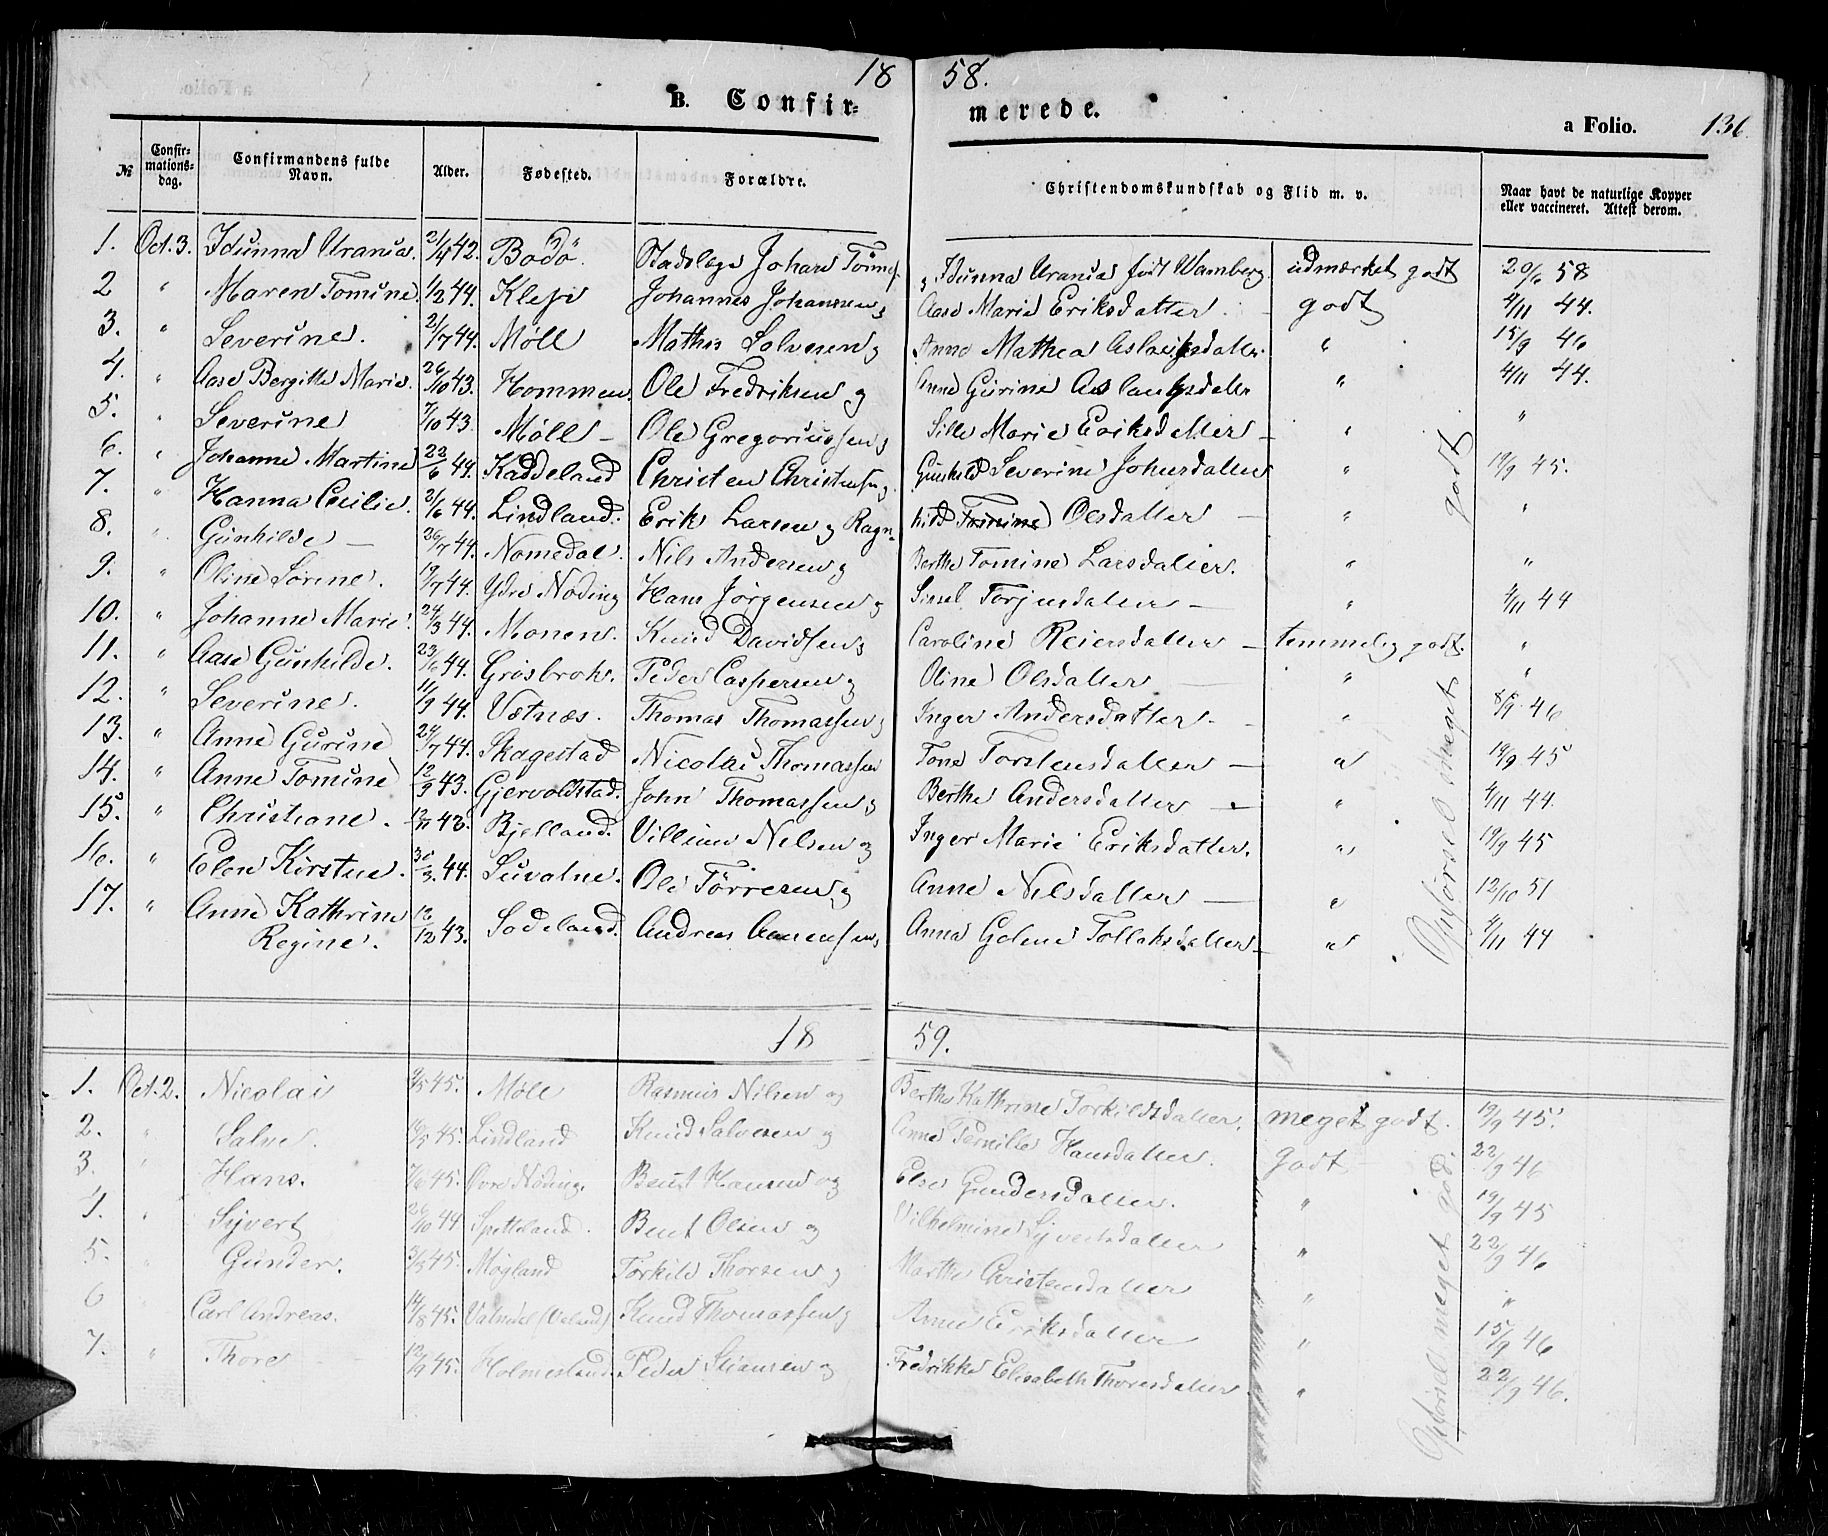 18 58.
B. Confir= merede.
a Folio. 136.
№ Confir-mations-dag. Confirmandens fulde Navn. Alder. Fødested. Forældre. Christendomskundskab og Flid m. v. Naar havt de naturlige Kopper eller vaccineret. Attest derom.
1. Oct. 3. Idunna Urania 21/4 42. Bodö. Stadslæge Johan , Idunna Urania født Wamberg. udmærket godt 20/6 58
2 " Maren Tomine. 1/2 44. Klepi Johannes Johansen og Aase Marie Eriksdatter. godt 4/11 44.
3. " Severine. 21/7 44. Møll Mathis Salvesen og Anne Mathea Aslaksdatter. " 15/9 46
4. " Aase Bergitte Marie. 26/10 43. Hommen. Ole Fredriksen og Anne Gurine Aslaugsdatter " 4/11 44.
5. " Severine 7/10 43. Møll – Ole Gregoriussen og Sille Marie Eriksdatter – " "
6. " Johanne Martine 22/6 44. Kaddeland Christen Christensen og Gunhild Severine Johnsdatter " 19/9 45.
7. " Hanna Cecilie. 21/6 44. Lindland. Erik Larsen og Ragn- hild Tomine Olsdatter – " "
8. " Gunhilde – 26/7 44. Nomedal. Nils Andersen og Berthe Tomine Larsdatter. " "
9. " Oline Sørine. 19/7 44. Ydre Nöding Hans Jörgensen og Sissel Torjusdatter – " 4/11 44
10. " Johanne Marie. 24/3 44. Monen. Knud Davidsen og Caroline Reiersdatter – temmelig godt. "
11. " Aase Gunhilde. 23/6 44. Grösbrok. Peder Caspersen og Oline Olsdatter – " "
12. " Severine. 11/9 44. Vatnæs. Thomas Thomassen og Inger Andersdatter. – " 8/9 46
13. " Anne Gurine 24/7 44. Skagestad Nicolai Thomassen Tone Torstensdatter – " 19/9 45
14. " Anne Tomine 12/9 43. Gjervoldstad. John Thomassen og Berthe Andersdatter – " 4/11 44.
15. " Christiane. 12/11 43. Bjelland. Villum Nilsen og Inger Marie Eriksdatter. " 19/9 45
16. " Elen Kirstine. 30/3 44. Suvatne. Ole Törresen og Anne Nilsdatter – " 12/10 51
17. " Anne Kathrine 12/12 43. Sodeland. Andreas og Anna Golene Tollaksdatter – " 4/11 44
Regine.
Opførsel meget godt
18 59.
1. Oct. 2. Nicolai 9/5 45. Møll Rasmus Nilsen og Berthe Kathrine Torkildsdatter. meget godt. 19/9 45.
2. " Salve. 16/5 45. Lindland Knud Salvesen og Anne Pernille Hansdatter. Godt – 22/9 46
3. " Hans. 7/6 45. Övre Nöding. Bent Hansen og Else Gundersdatter. " 19/9 45
4. " Syvert 26/10 44. Spetteland. Bent Olsen og Vilhelmine Syvertsdatter " 22/9 46
5. " Gunder. 3/5 45. Møgland Torkild Thorsen og Marthe Christensdatter " "
6 " Carl Andreas. 14/8 45. Vatnedal (Veland) Knud Thomassen og Anne Eriksdatter " 15/9 46
7. " Thore 12/9 45. Holmesland Peder Stiansen og Fredrikke Elisabeth Thoresdatter. " 22/9 46.
Opførsel meget god.